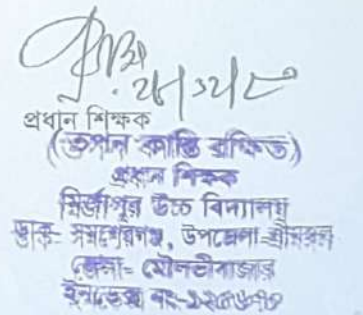 প্রধান শিক্ষক
(তপন কান্তি রক্ষিত)
প্রধান শিক্ষক
মির্জাপুর উচ্চ বিদ্যালয়
ডাক- সমশেরগঞ্জ, উপজেলা-শ্রীমঙ্গল
জেলা- মৌলভীবাজার
ইনডেক্স নং-